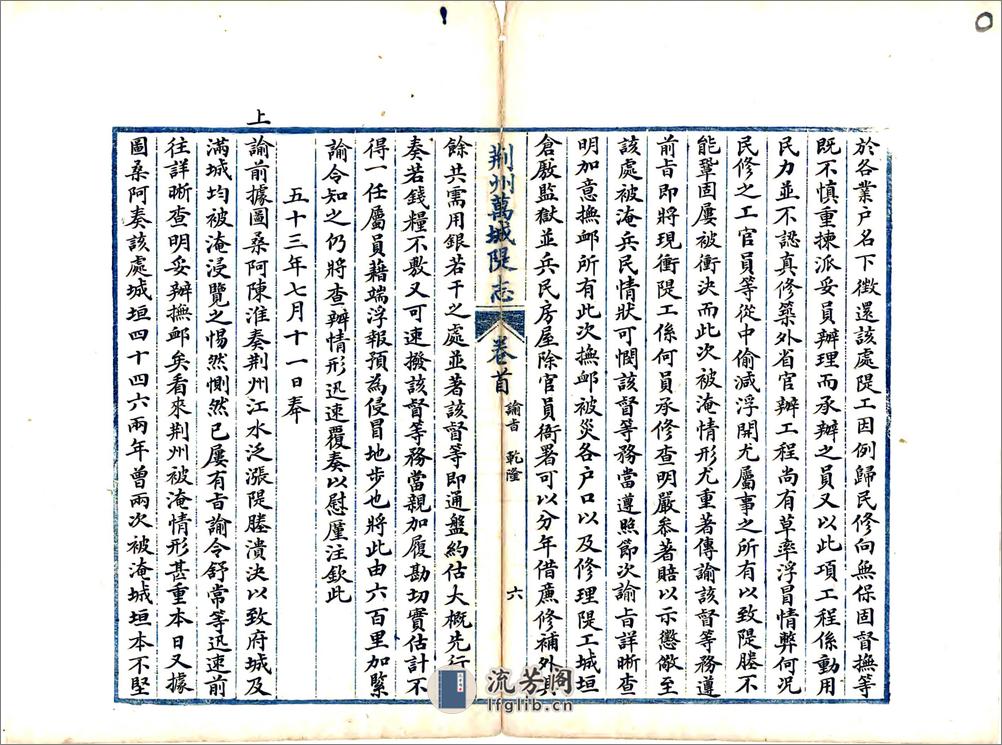 於各業户名下徵還該處隄工因例歸民修向無保固督撫等
既不慎重揀派妥員辦理而承辦之員又以此項工程係動用
民力並不認真修築外省官辦工程尚有草率浮冒情弊何况
民修之工官員等從中偷減浮開尤屬事之所有以致隄塍不
能鞏固屢被衝決而此次被淹情形尤重著傳諭該督等務遵
前旨即將現衝隄工係何員承修查明嚴叅著賠以示懲儆至
該處被淹兵民情狀可憫該督等務當遵照節次諭旨詳晰查
明加意撫衈所有此次撫衈被災各户口以及修理隄工城垣
倉厫監獄並兵民房屋除官員衙署可以分年借廉修補外其
荆州萬城隄志 卷首 諭旨 乾隆 六
餘共需用銀若干之處並著該督等即通盤約估大概先行
奏若錢糧不敷又可速撥該督等務當親加履勘切實估計不
得一任屬員藉端浮報預為侵冒地步也將此由六百里加緊
諭令知之仍將查辦情形迅速覆奏以慰厪注欽此
五十三年七月十一日奉
上諭前據圖桑阿陳淮奏荆州江水泛漲隄塍潰決以致府城及
滿城均被淹浸覽之惕然惻然已屢有旨諭令舒常等迅速前
往詳晰查明妥辦撫衈矣看來荆州被淹情形甚重本日又據
圖桑阿奏該處城垣四十四六兩年曾兩次被淹城垣本不堅
流芳阁
lfglib.cn